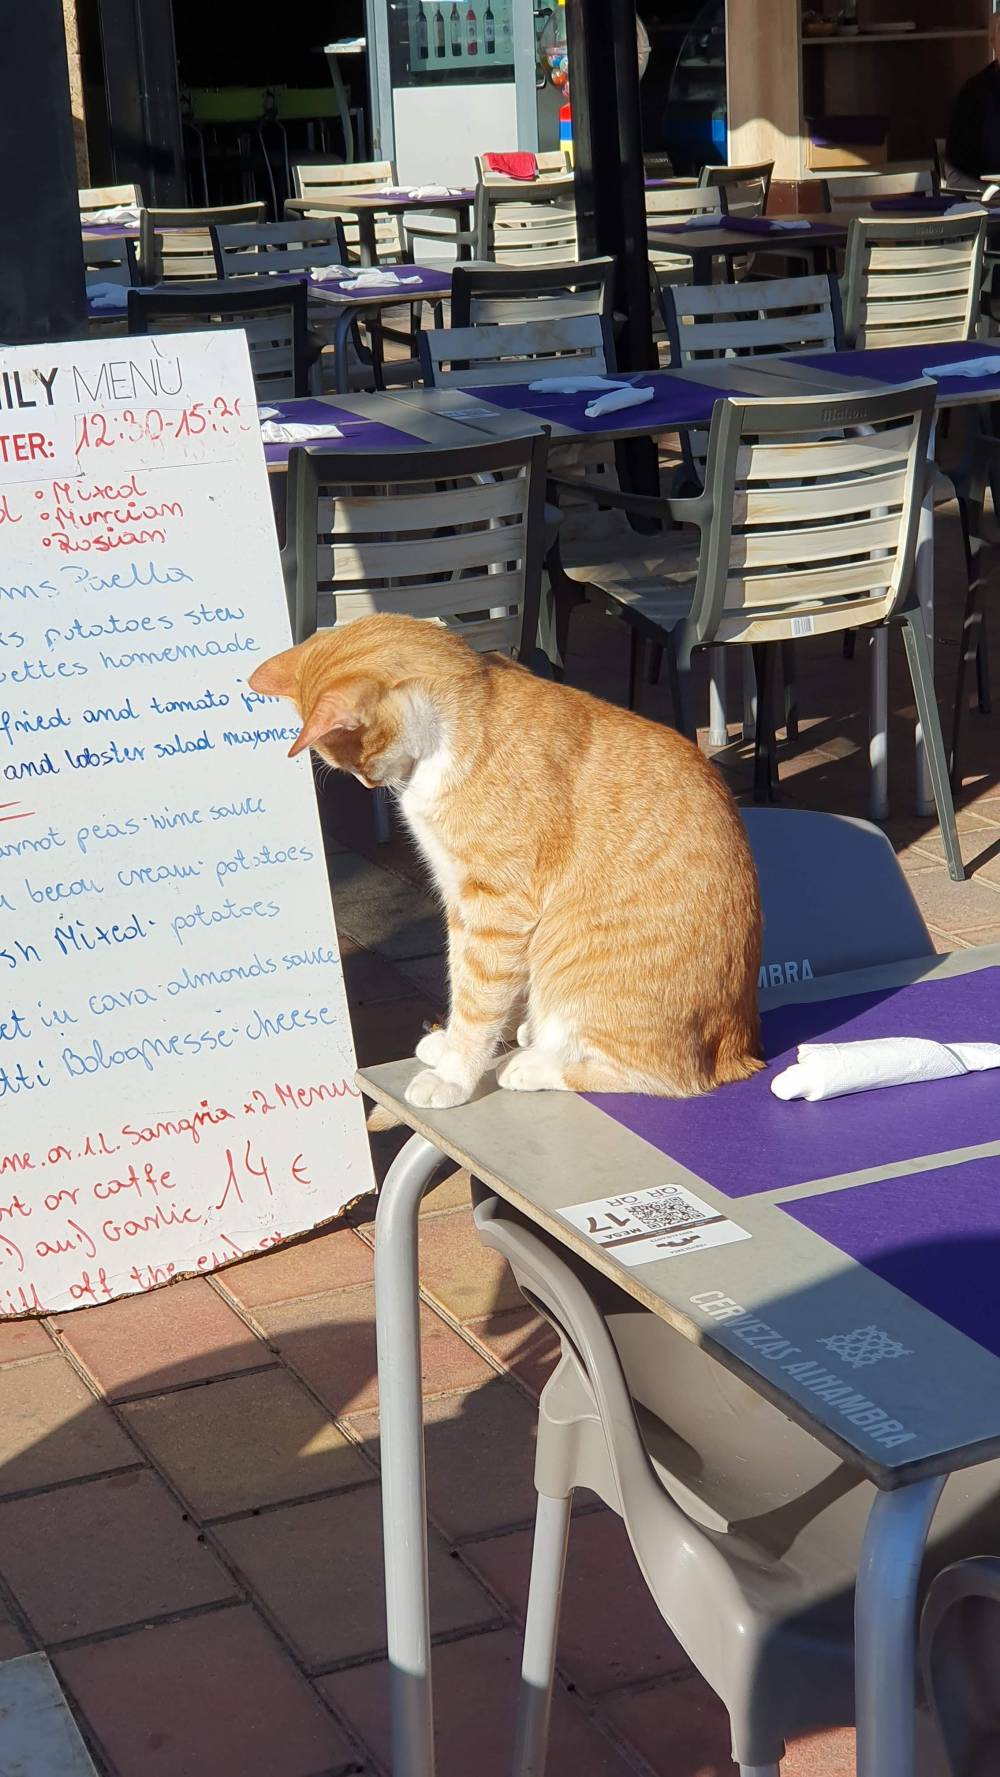 ILY MENÙ
TER: 12:30-15:3
• Mixed
• Murcian
• Rosian
Paella
potatoes stew
ettes homemade
fried and tomato jam
and lobster salad mayoness
arrot peas-wine sauce
cream potatoes
sh Mixed- potatoes
et in cava-almonds sauce
tti Bolognesse-cheese
ne.or.1L. Sangria x2 Menu
rt or caffe 14 €
Garlic,
off the
MBRA
QR QR
MESA
17
CERVEZAS ALHAMBRA